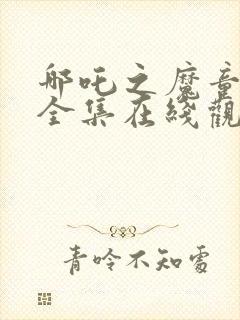 哪吒之魔童
全集在线觀
青呤不知處